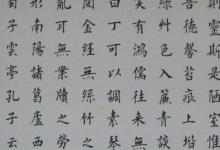 靈斯是陋室惟
吾德馨苔痕上階
綠艸色入簾青談
笑有鴻儒往來無
白丁可以調素琴
閱金經無絲竹之
亂耳無案牘之勞
形南陽諸葛廬西
蜀子雲亭孔子云